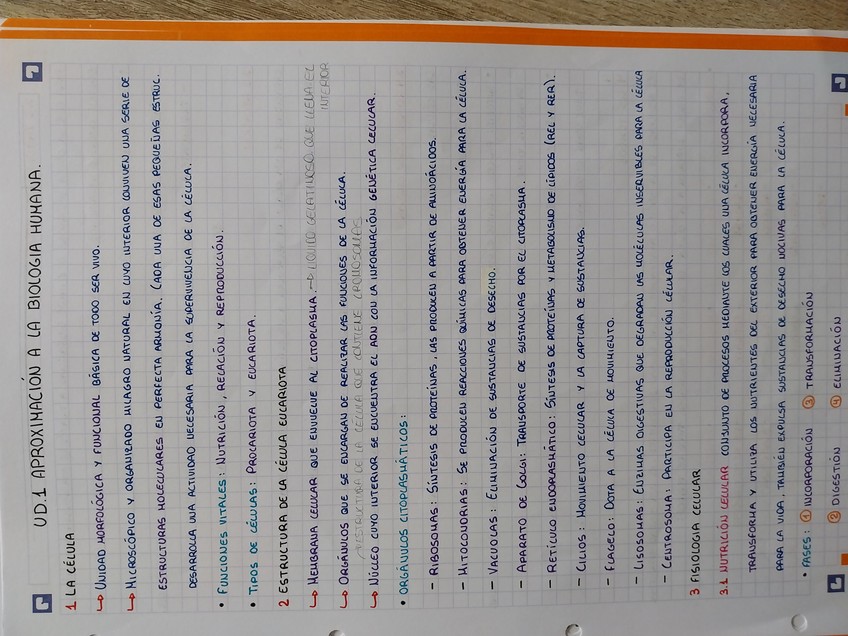 UD.1 APROXIMACIÓN A LA BIOLOGIA HUMANA.
1 LA CÉLULA
↳ UNIDAD MORFOLÓGICA Y FUNCIONAL BÁSICA DE TODO SER VIVO.
↳ MICROSCÓPICO Y ORGANIZADO MILAGRO NATURAL EN CUYO INTERIOR CONVIVEN UNA SERIE DE
ESTRUCTURAS MOLECULARES EN PERFECTA ARMONÍA. CADA UNA DE ESAS PEQUEÑAS ESTRUC.
DESARROLLA UNA ACTIVIDAD NECESARIA PARA LA SUPERVIVENCIA DE LA CÉLULA.
• FUNCIONES VITALES: NUTRICIÓN, RELACIÓN Y REPRODUCCIÓN.
• TIPOS DE CÉLULAS: PROCARIOTA Y EUCARIOTA.
2 ESTRUCTURA DE LA CÉLULA EUCARIOTA
↳ MEMBRANA CELULAR QUE ENVUELVE AL CITOPLASMA. → LÍQUIDO GELATINOSO QUE LLENA EL
INTERIOR
↳ ORGÁNULOS QUE SE ENCARGAN DE REALIZAR LAS FUNCIONES DE LA CÉLULA.
ESTRUCTURA DE LA CÉLULA QUE CONTIENE CROMOSOMAS
↳ NÚCLEO CUYO INTERIOR SE ENCUENTRA EL ADN CON LA INFORMACIÓN GENÉTICA CELULAR.
• ORGÁNULOS CITOPLASMÁTICOS:
- RIBOSOMAS: SÍNTESIS DE PROTEÍNAS, LAS PRODUCEN A PARTIR DE AMINOÁCIDOS.
- MITOCONDRIAS: SE PRODUCEN REACCIONES QUÍMICAS PARA OBTENER ENERGÍA PARA LA CÉLULA.
- VACUOLAS: ELIMINACIÓN DE SUSTANCIAS DE DESECHO.
- APARATO DE GOLGI: TRANSPORTE DE SUSTANCIAS POR EL CITOPLASMA.
- RETÍCULO ENDOPLASMÁTICO: SÍNTESIS DE PROTEÍNAS Y METABOLISMO DE LÍPIDOS (REL Y RER).
- CILIOS: MOVIMIENTO CELULAR Y LA CAPTURA DE SUSTANCIAS.
- FLAGELO: DOTA A LA CÉLULA DE MOVIMIENTO.
- LISOSOMAS: ENZIMAS DIGESTIVAS QUE DEGRADAN LAS MOLÉCULAS INSERVIBLES PARA LA CÉLULA
- CENTROSOMA: PARTICIPA EN LA REPRODUCCIÓN CÉLULAR.
3 FISIOLOGIA CELULAR
3.1 NUTRICIÓN CELULAR CONJUNTO DE PROCESOS MEDIANTE LOS CUALES UNA CÉLULA INCORPORA,
TRANSFORMA Y UTILIZA LOS NUTRIENTES DEL EXTERIOR PARA OBTENER ENERGÍA NECESARIA
PARA LA VIDA, TAMBIÉN EXPULSA SUSTANCIAS DE DESECHO NOCIVAS PARA LA CÉLULA.
• FASES: ① INCORPORACIÓN ③ TRANSFORMACIÓN
② DIGESTIÓN ④ ELIMINACIÓN